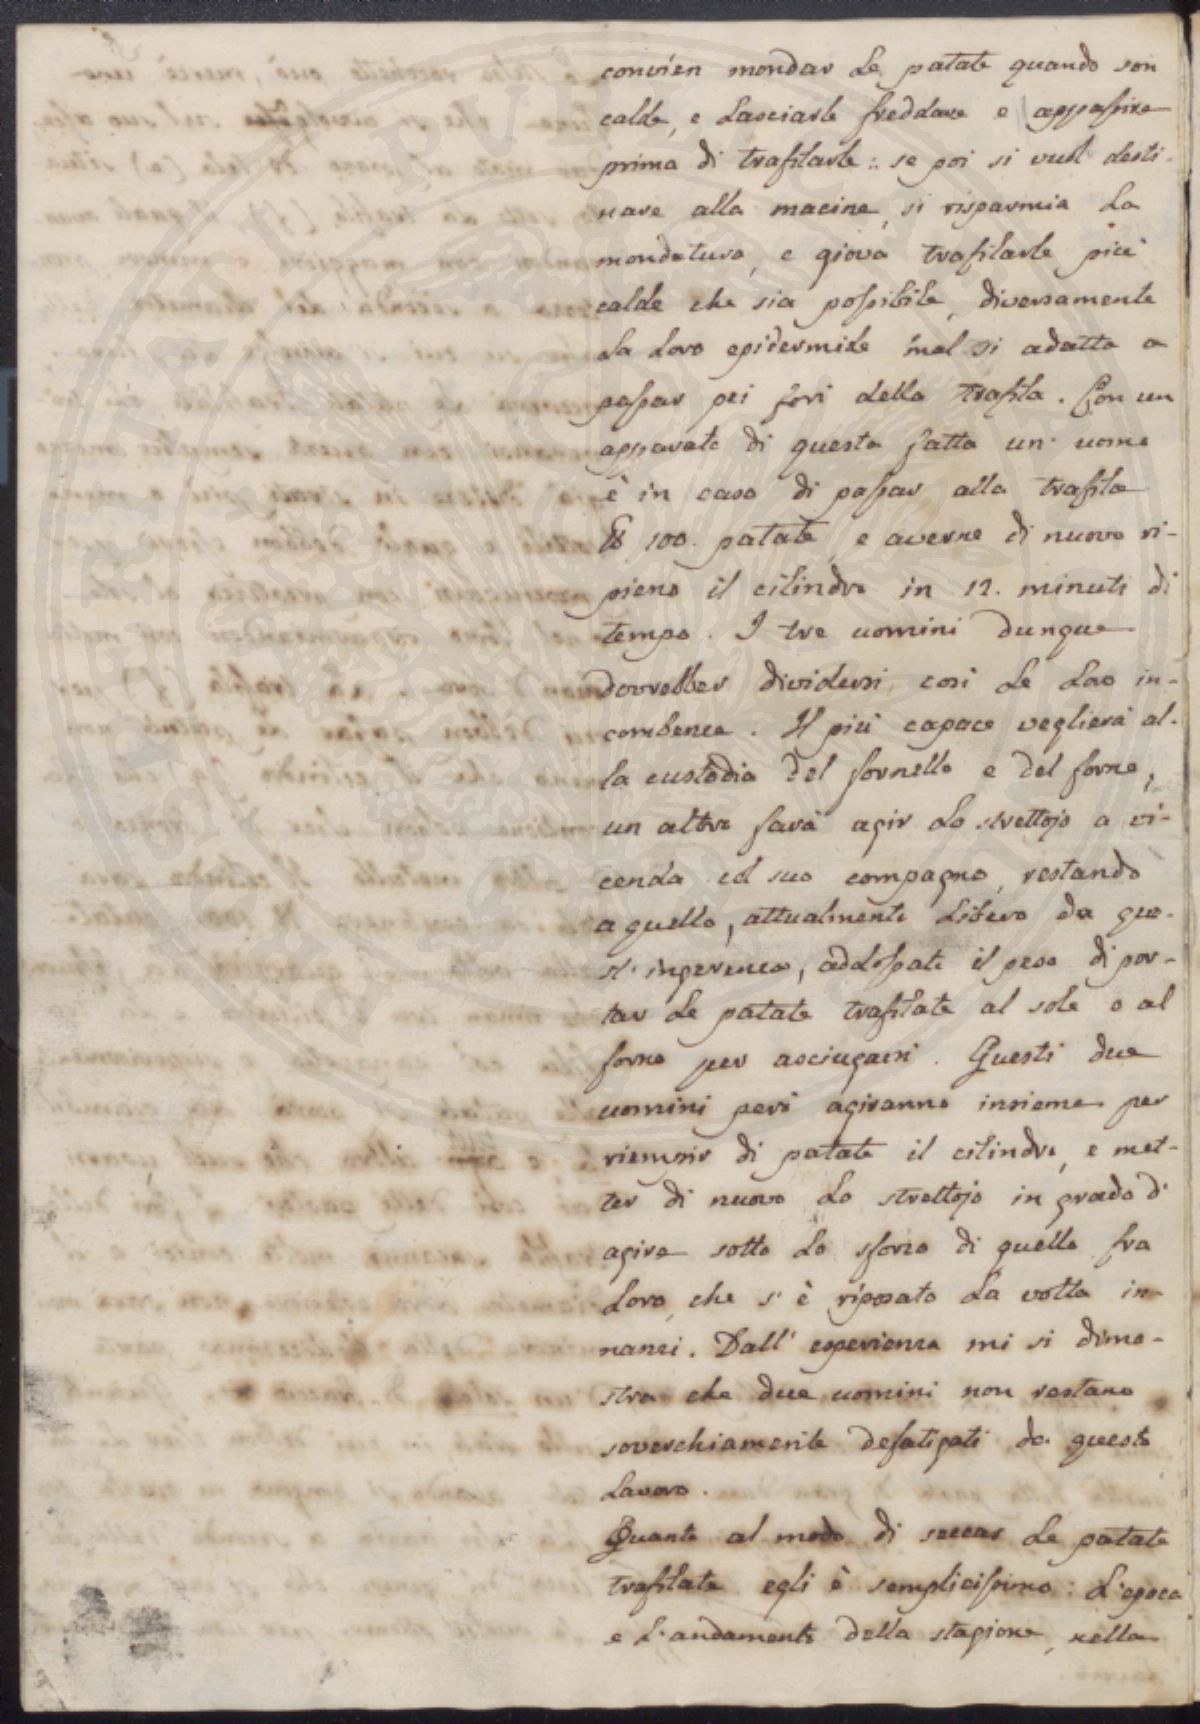 convien mondar le patate quando son
calde, e lasciarle freddare e appassire
prima di trafilarle: se poi si vuol desti-
nare alla macine, si risparmia la
mondatura, e giova trafilarle più
calde che sia possibile, diversamente
la loro epidermide mal si adatta a
passar pei fori della trafila. Con un
apparato di questa fatta un uomo
è in caso di passar alla trafila
℔ 100. patate, e averne di nuovo ri-
pieno il cilindro in 12. minuti di
tempo. I tre uomini dunque
dovrebber dividersi così le loro in-
combenze. Il più capace veglierà al-
la custodia del fornello e del forno,
un altro farà agir lo strettojo a vi-
cenda col suo compagno, restando
a quello, attualmente libero da que-
st' ingerenza, addossato il peso di por-
tar le patate trafilate al sole o al
forno per asciugarsi. Questi due
uomini però agiranno insieme per
riempir di patate il cilindro, e met-
ter di nuovo lo strettojo in grado d'
agire sotto lo sforzo di quello fra
loro, che s'è riposato la volta in-
nanzi. Dall' esperienza mi si dimo-
stra che due uomini non restano
soverchiamente defatigati da questo
lavoro.
Quanto al modo di seccar le patate
trafilate egli è semplicissimo: L'epoca
e l'andamento della stagione, nella